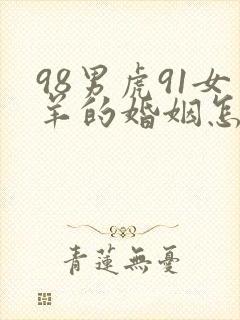 98男虎91女
羊的婚姻怎
青蓮無憂